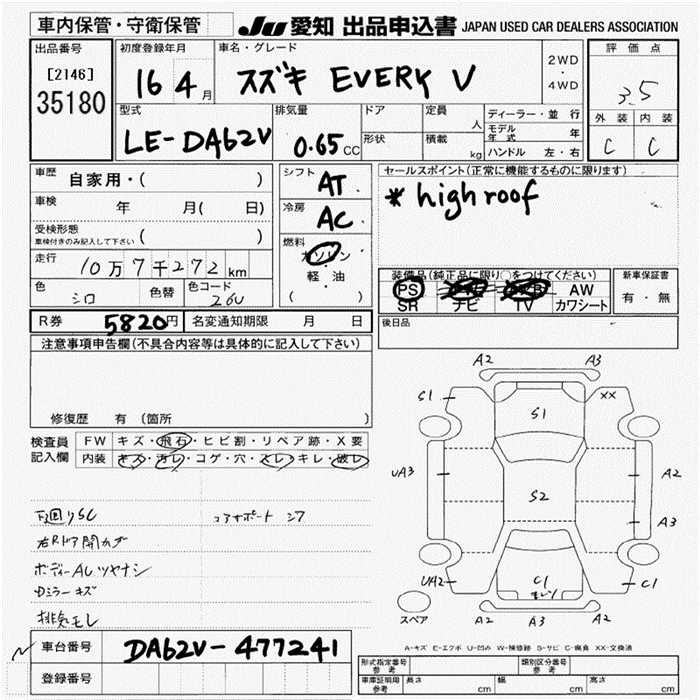 車内保管・守衛保管
JU 愛知 出品申込書 JAPAN USED CAR DEALERS ASSOCIATION
出品番号
[2146]
35180
初度登録年月
16 4月
車名・グレード
スズキ EVERY V
2WD
・
4WD
評価点
3.5
外装 内装
C C
型式
LE-DA62V
排気量
0.65 CC
ドア
形状
定員
人
積載
kg
ディーラー・並行
モデル年式 年
ハンドル 左・右
車歴
自家用・( )
車検
年 月( 日)
受検形態
車検付きのみ記入して下さい ( )
走行
10万7千272km
色
シロ
色替
色コード
26U
シフト
AT
冷房
AC
燃料
ガソリン
・
軽・油
( )
セールスポイント(正常に機能するものに限ります)
* high roof
装備品(純正品に限り○をつけてください)
PS AW
SR ナビ TV カワシート
新車保証書
有・無
後日品
R券 5820円 名変通知期限 月 日
注意事項申告欄(不具合内容等は具体的に記入して下さい)
修復歴 有(箇所 )
検査員
記入欄
FW キズ・飛石・ヒビ割・リペア跡・X要
内装 キズ・汚レ・コゲ・穴・スレ・キレ・破レ
下回りSC
コアサポート シワ
右Rドア開カズ
ボディーAUツヤナシ
ミラーキズ
排気モレ
A2 A3
S1 XX
S1
UA3 A2
S2
A3
UA2 C1 C1
スペア
A2 A3 A2
A-キズ E-エクボ U-凹み W-補修跡 S-サビ C-腐食 XX-交換済
車台番号 DA62V-477241
登録番号
形式指定番号
参考
類別区分番号
参考
車庫証明用
参考
長さ cm 幅 cm 高さ cm